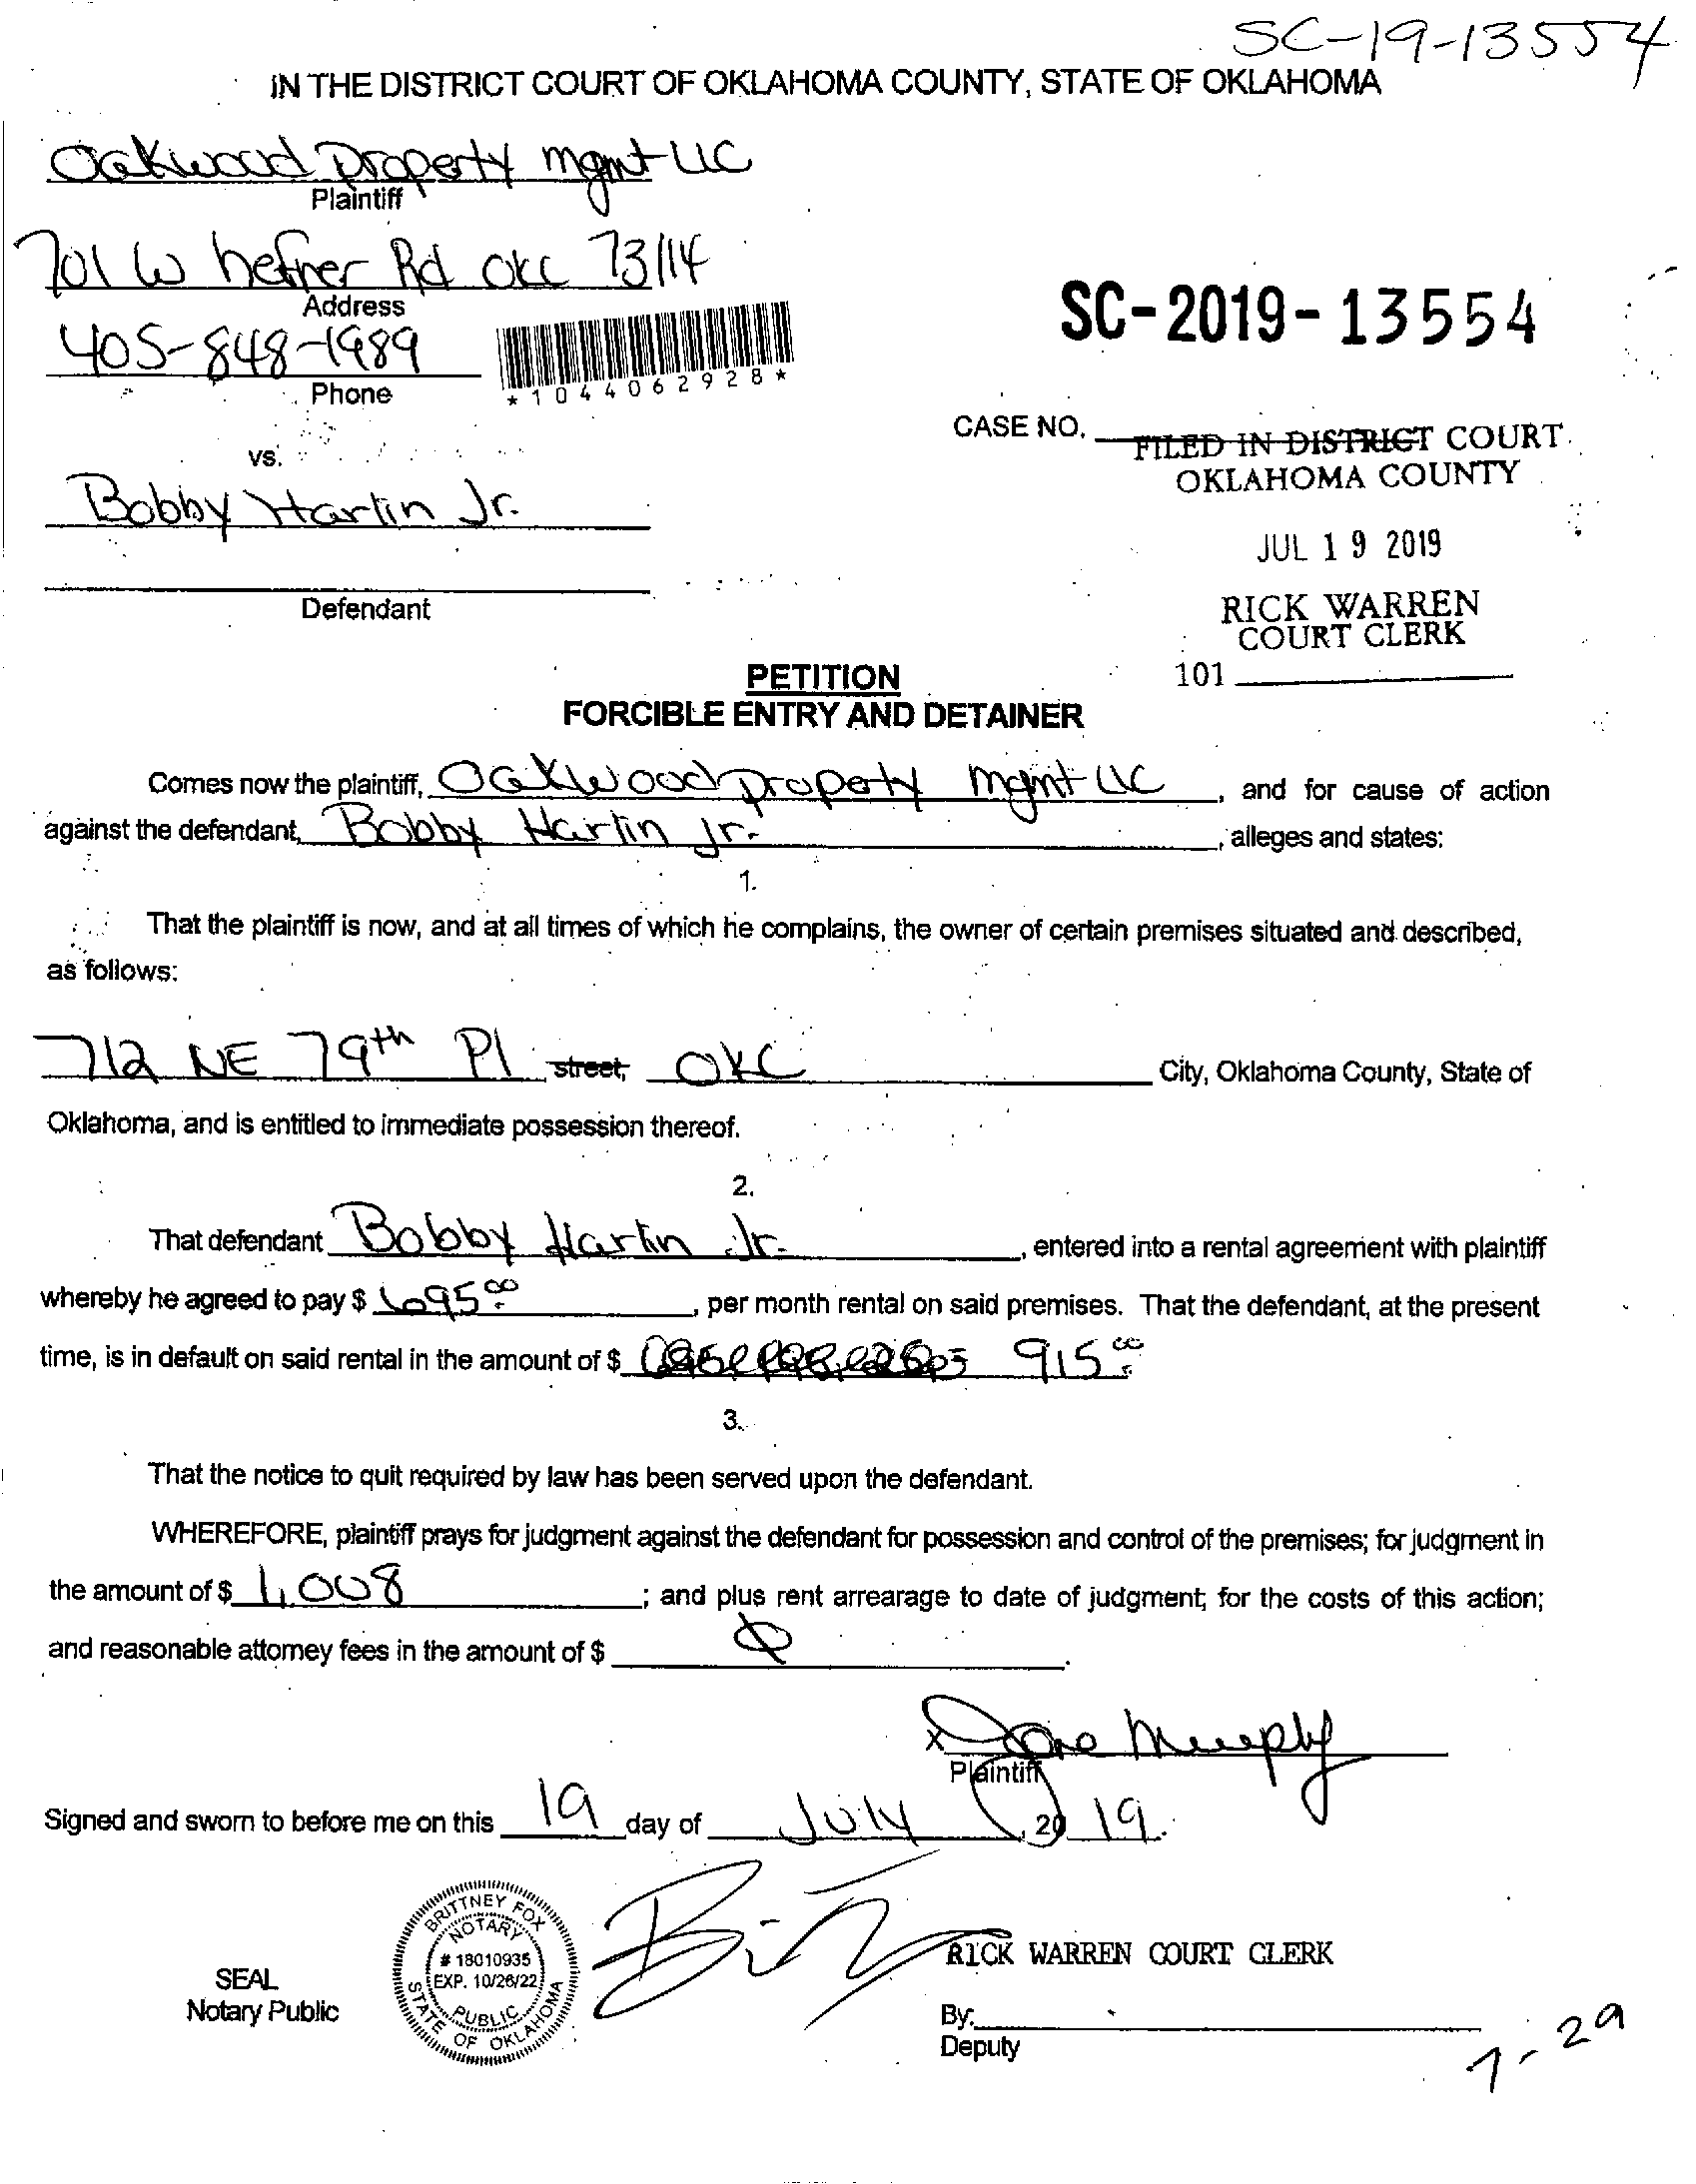 SC-19-13554
IN THE DISTRICT COURT OF OKLAHOMA COUNTY, STATE OF OKLAHOMA
Oakwood Property mgmt LLC
Plaintiff
701 W hefner Rd OKC 73114
Address
405-848-1989
Phone
*1044062928*
SC-2019-13554
CASE NO.
FILED IN DISTRICT COURT
OKLAHOMA COUNTY
vs.
Bobby Hartin Jr.
JUL 19 2019
Defendant
RICK WARREN
COURT CLERK
101
PETITION
FORCIBLE ENTRY AND DETAINER
Comes now the plaintiff, Oakwood Property mgmt LLC, and for cause of action
against the defendant, Bobby Hartin Jr., alleges and states:
1.
That the plaintiff is now, and at all times of which he complains, the owner of certain premises situated and described,
as follows:
712 NE 79th Pl street, OKC City, Oklahoma County, State of
Oklahoma, and is entitled to immediate possession thereof.
2.
That defendant Bobby Hartin Jr., entered into a rental agreement with plaintiff
whereby he agreed to pay $ 695.00, per month rental on said premises. That the defendant, at the present
time, is in default on said rental in the amount of $ 915.00
3.
That the notice to quit required by law has been served upon the defendant.
WHEREFORE, plaintiff prays for judgment against the defendant for possession and control of the premises; for judgment in
the amount of $ 1,008; and plus rent arrearage to date of judgment; for the costs of this action;
and reasonable attorney fees in the amount of $ 0.
x Jane Murphy
Plaintiff
Signed and sworn to before me on this 19 day of July, 2019.
BRITTNEY FOX
NOTARY
# 18010935
EXP. 10/26/22
PUBLIC
STATE OF OKLAHOMA
SEAL
Notary Public
RICK WARREN COURT CLERK
By:
Deputy
7-29